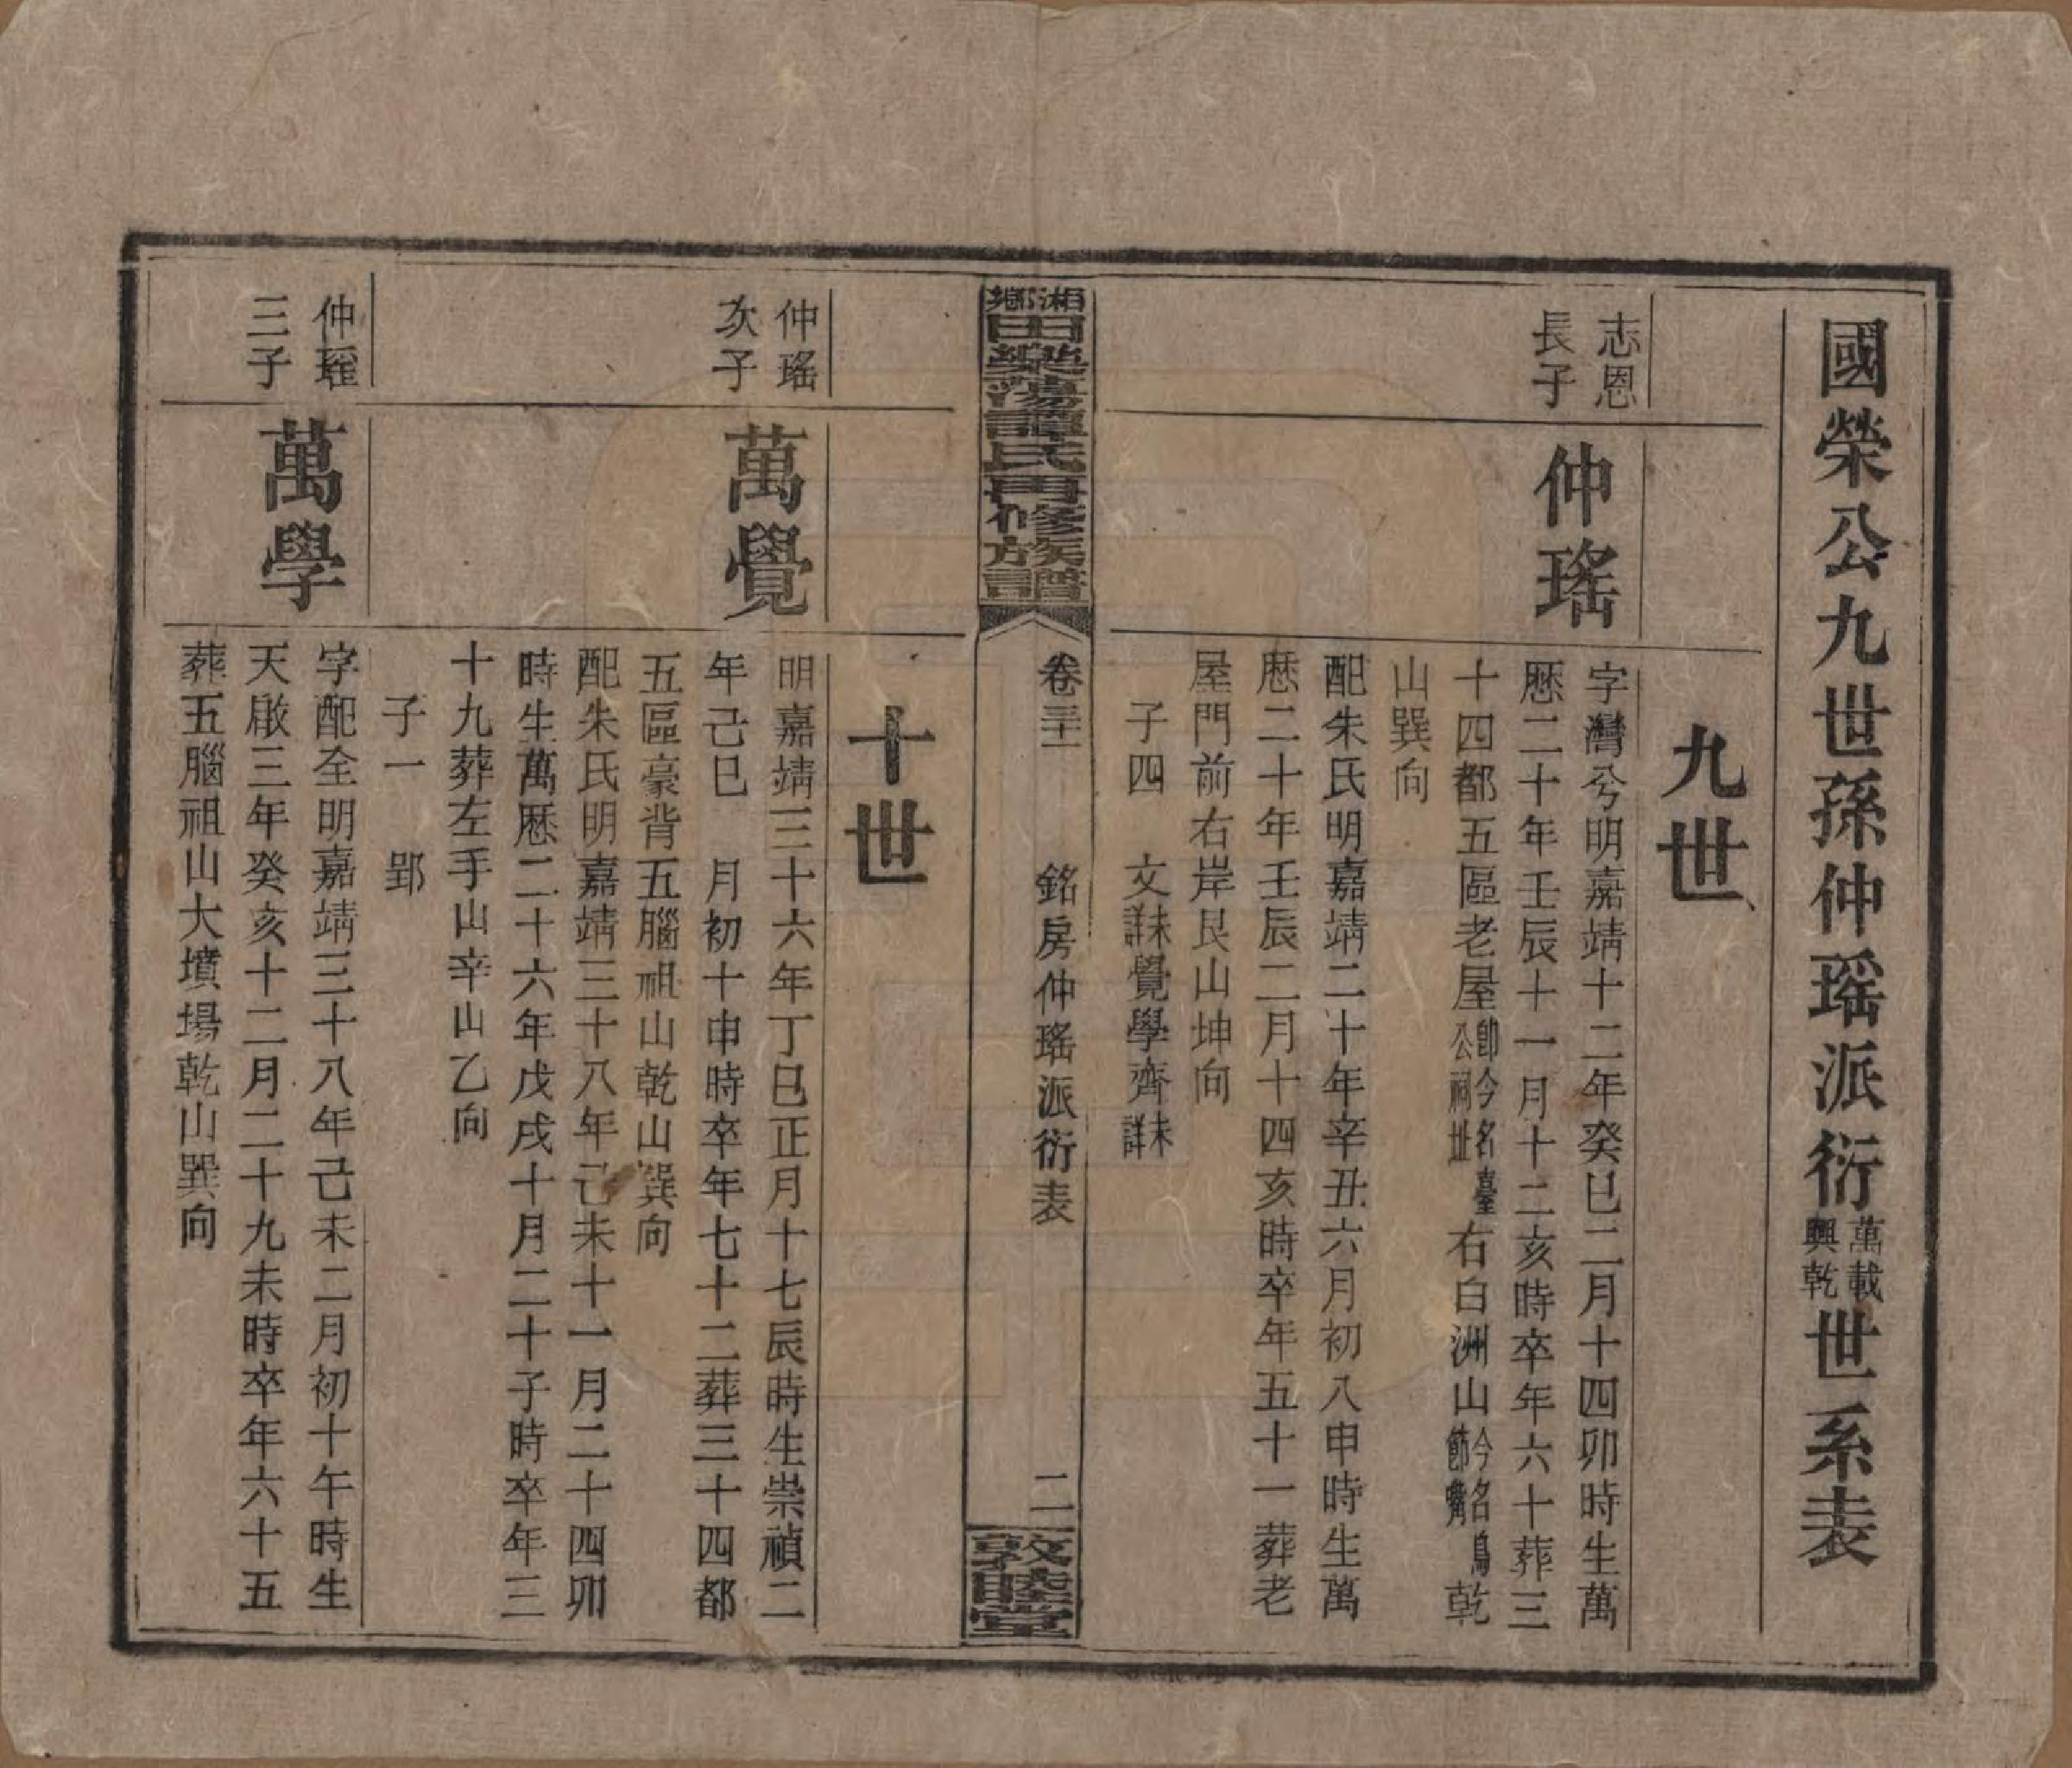 國榮公九世孫仲瑶派衍萬載興乾世系表
九世
志恩
長子
仲瑤
字灣兮明嘉靖十二年癸巳二月十四卯時生萬
歷二十年壬辰十一月十二亥時卒年六十葬三
十四都五區老屋卽今名臺公祠世右白洲山今名鳥節嘴乾
山巽向
配朱氏明嘉靖二十年辛丑六月初八申時生萬
歷二十年壬辰二月十四亥時卒年五十一葬老
屋門前右岸艮山坤向
子四　文未詳覺學齊未詳
湘鄉田樂蕩譚氏再修族譜
卷三十一
銘房仲瑤派衍表
二
敦睦堂
十世
仲瑤
次子
萬覺
明嘉靖三十六年丁巳正月十七辰時生崇禎二
年己巳　月初十申時卒年七十二葬三十四都
五區豪背五腦祖山乾山巽向
配朱氏明嘉靖三十八年己未十一月二十四卯
時生萬歷二十六年戊戌十月二十子時卒年三
十九葬左手山辛山乙向
子一　郢
仲瑤
三子
萬學
字配全明嘉靖三十八年己未二月初十午時生
天啟三年癸亥十二月二十九未時卒年六十五
葬五腦祖山大墳場乾山巽向